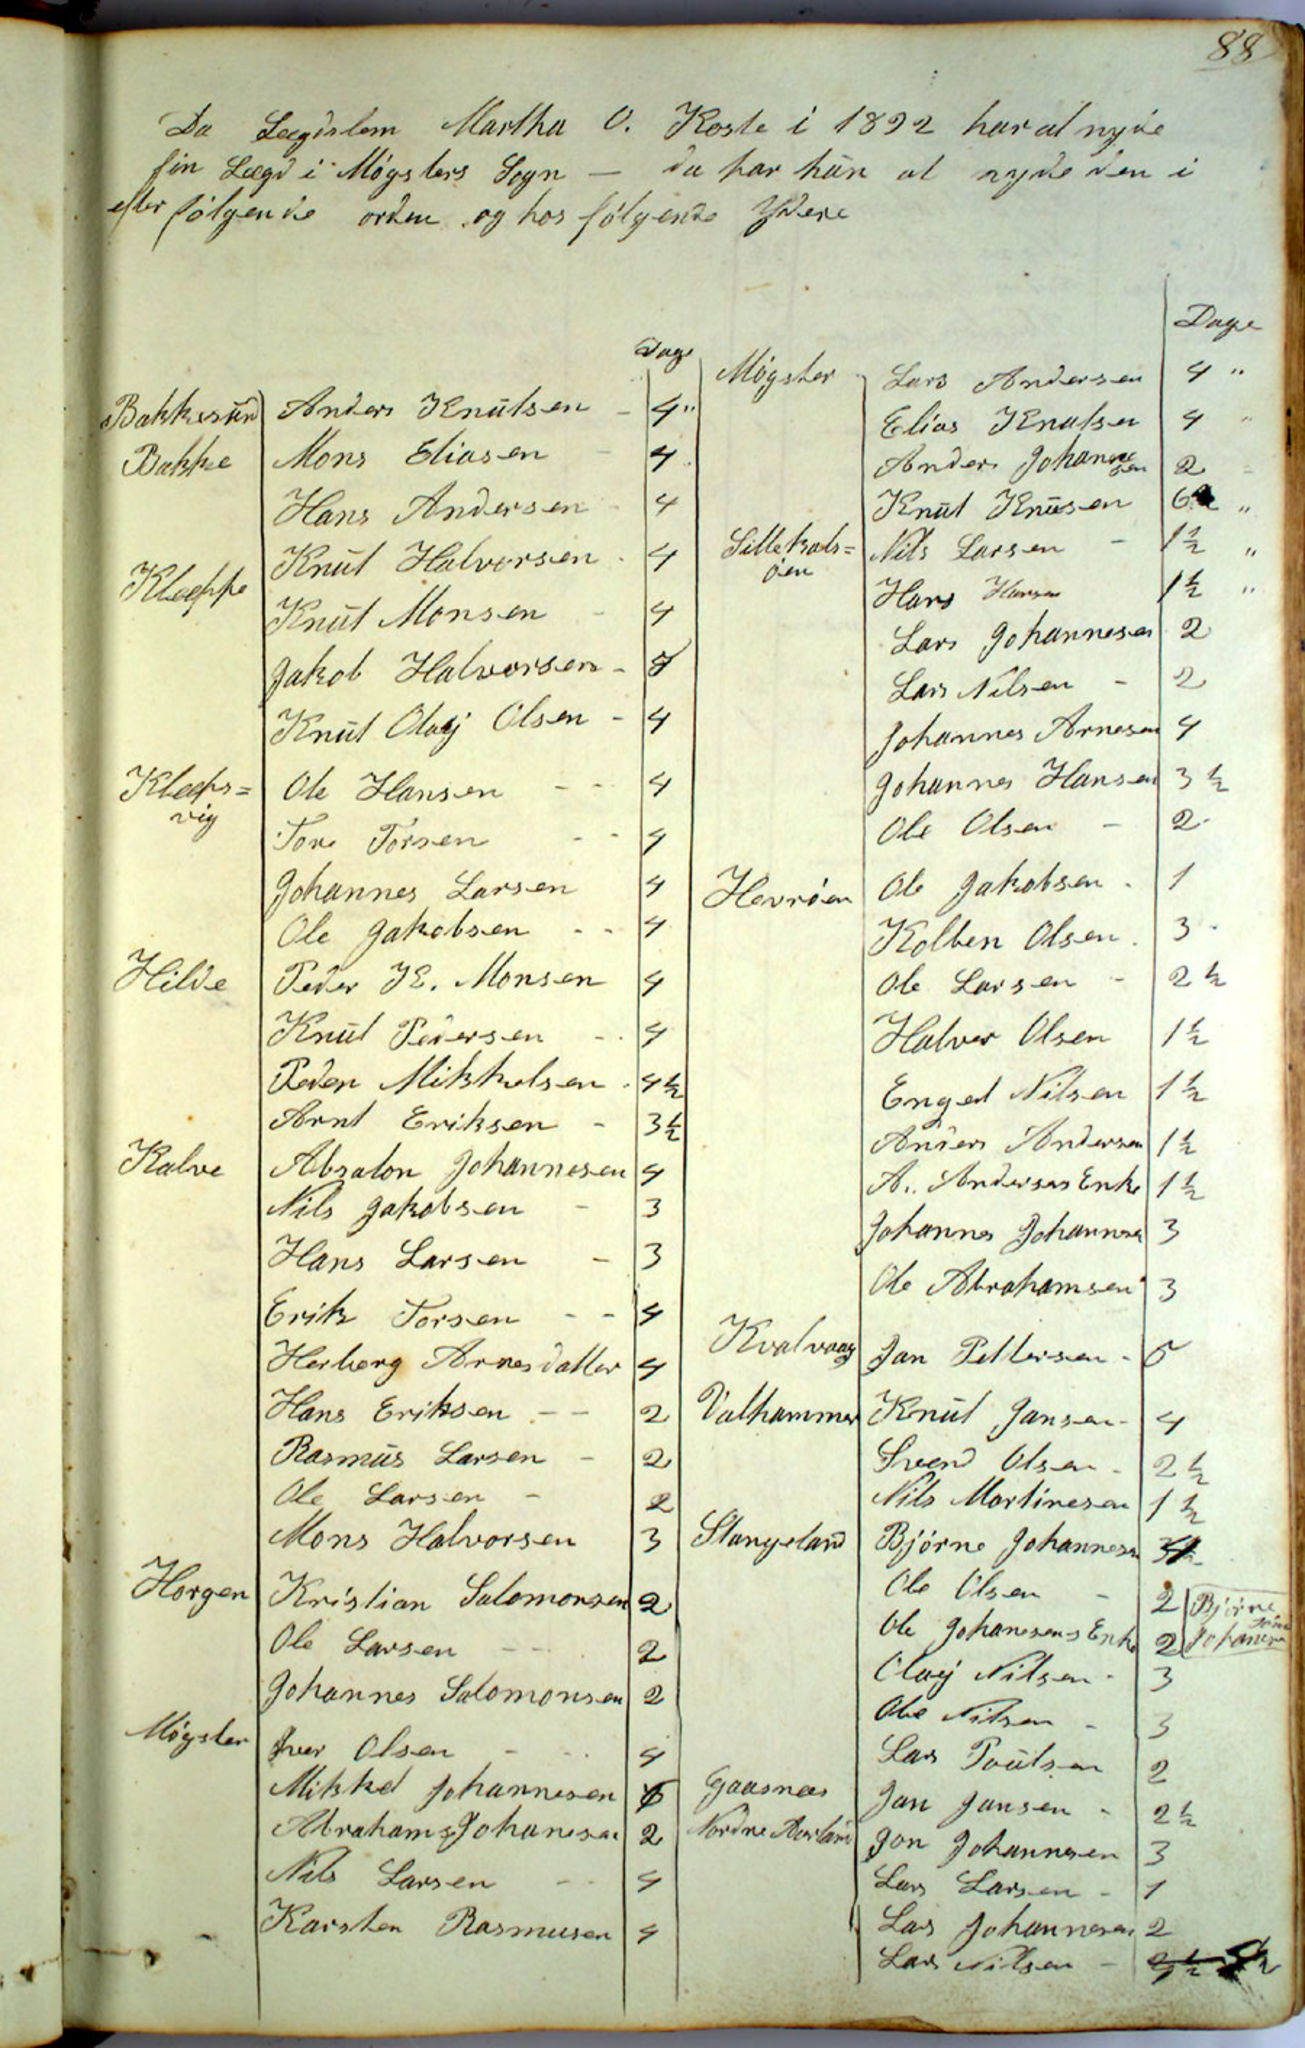 88
Da Lægdslem Martha O. Koste i 1892 har at nyde
sin Lægd i Møgsters Sogn — da har hün at nyde den i
efterfølgende orden og hos følgende Ydere
Dage
Bakkesünd Anders Knütsen - 4 "
Bakke Mons Eliasen - 4
Hans Andersen - 4
Knüt Halvorsen - 4
Kleppe Knüt Monsen - 4
Jakob Halvorsen -
Knüt Olaij Olsen - 4
Kleps=vig Ole Hansen - - 4
Tore Torsen - - 4
Johannes Larsen 4
Ole Jakobsen - - 4
Hilde Peder K. Monsen 4
Knüt Pedersen - - 4
Peder Mikkelsen - 4 1/2
Arnt Eriksen - 3 1/2
Kalve Absalon Johannesen 4
Nils Jakobsen - 3
Hans Larsen - 3
Erik Torsen - - 4
Herborg Arnesdatter 4
Hans Eriksen - - 2
Rasmüs Larsen - 2
Ole Larsen - 2
Mons Halvorsen 3
Horgen Kristian Salomonsen 2
Ole Larsen - - 2
Johannes Salomonsen 2
Møgster Iver Olsen - - 4
Mikkel Johannesen 6
Abraham Johanesen 2
Nils Larsen - - 4
Karsten Rasmusen 4
Dage
Møgster Lars Andersen 4 "
Elias Knutsen 4 "
Anders Johannesen 2 "
Knüt Knüsen 6 "
Sillekals=øen Nils Larsen - 1 1/2 "
Hans Hansen 1 1/2 "
Lars Johannesen 2
Lars Nilsen - 2
Johannes Arnesen 4
Johannes Hansen 3 1/2
Ole Olsen - 2
Hevrøen Ole Jakobsen - 1
Kolben Olsen - 3
Ole Larsen - 2 1/2
Halvor Olsen 1 1/2
Engel Nilsen 1 1/2
Anders Andersen 1 1/2
A. Andersens Enke 1 1/2
Johannes Johannesen 3
Ole Abrahamsen 3
Kvalvaag Jan Pettersen -
Valhammer Knüt Jansen - 4
Svend Olsen - 2 1/2
Nils Martinesen 1 1/2
Stangeland Bjørne Johannesen
Ole Olsen - 2 Bjørne
Ole Johanesens Enke 2 Johanesen
Olaij Nilsen - 3
Ole Nilsen - 3
Lars Poülsen 2
Gaasnæs Jan Jansen - 2 1/2
Nordre Aarland Jon Johannesen 3
Lars Larsen - 1
Lars Johannesen 2
Lars Nilsen -